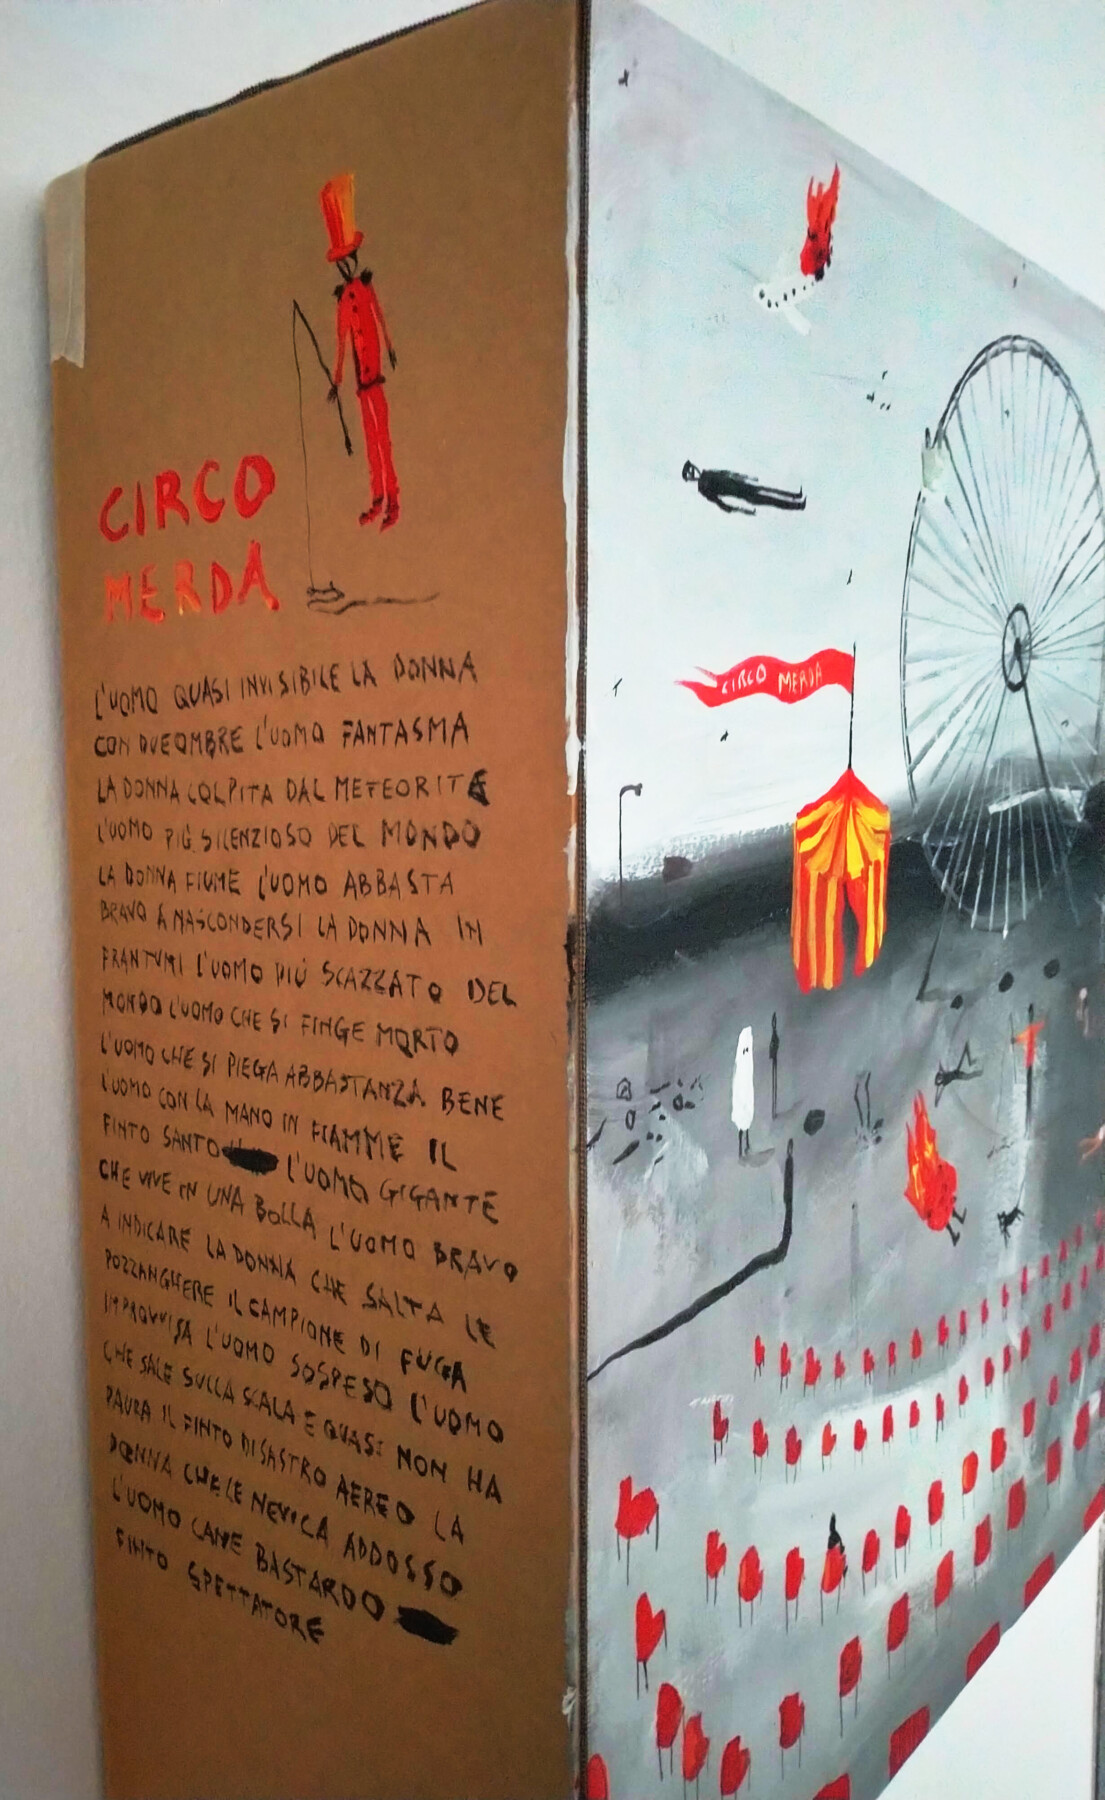 CIRCO
MERDA
L'UOMO QUASI INVISIBILE LA DONNA
CON DUE OMBRE L'UOMO FANTASMA
LA DONNA COLPITA DAL METEORITE
L'UOMO PIÙ SILENZIOSO DEL MONDO
LA DONNA FIUME L'UOMO ABBASTA
BRAVO A NASCONDERSI LA DONNA IN
FRANTUMI L'UOMO PIÙ SCAZZATO DEL
MONDO L'UOMO CHE SI FINGE MORTO
L'UOMO CHE SI PIEGA ABBASTANZA BENE
L'UOMO CON LA MANO IN FIAMME IL
FINTO SANTO L'UOMO GIGANTE
CHE VIVE IN UNA BOLLA L'UOMO BRAVO
A INDICARE LA DONNA CHE SALTA LE
POZZANGHERE IL CAMPIONE DI FUGA
IMPROVVISA L'UOMO SOSPESO L'UOMO
CHE SALE SULLA SCALA E QUASI NON HA
PAURA IL FINTO DISASTRO AEREO LA
DONNA CHE LE NEVICA ADDOSSO
L'UOMO CANE BASTARDO
FINTO SPETTATORE
CIRCO MERDA